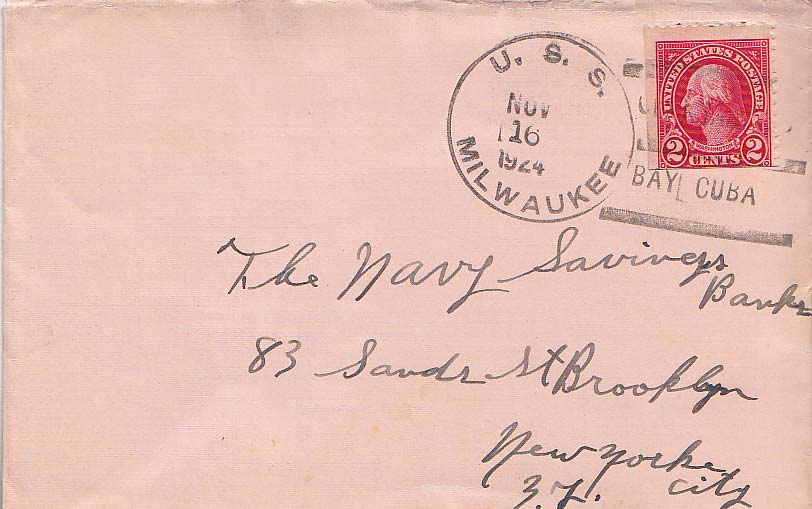 U. S. S.
NOV
16
1924
MILWAUKEE
UNITED STATES POSTAGE
WASHINGTON
2 CENTS 2
BAY CUBA
The Navy Savings
Banks
83 Sands St Brooklyn
New Yorke
City